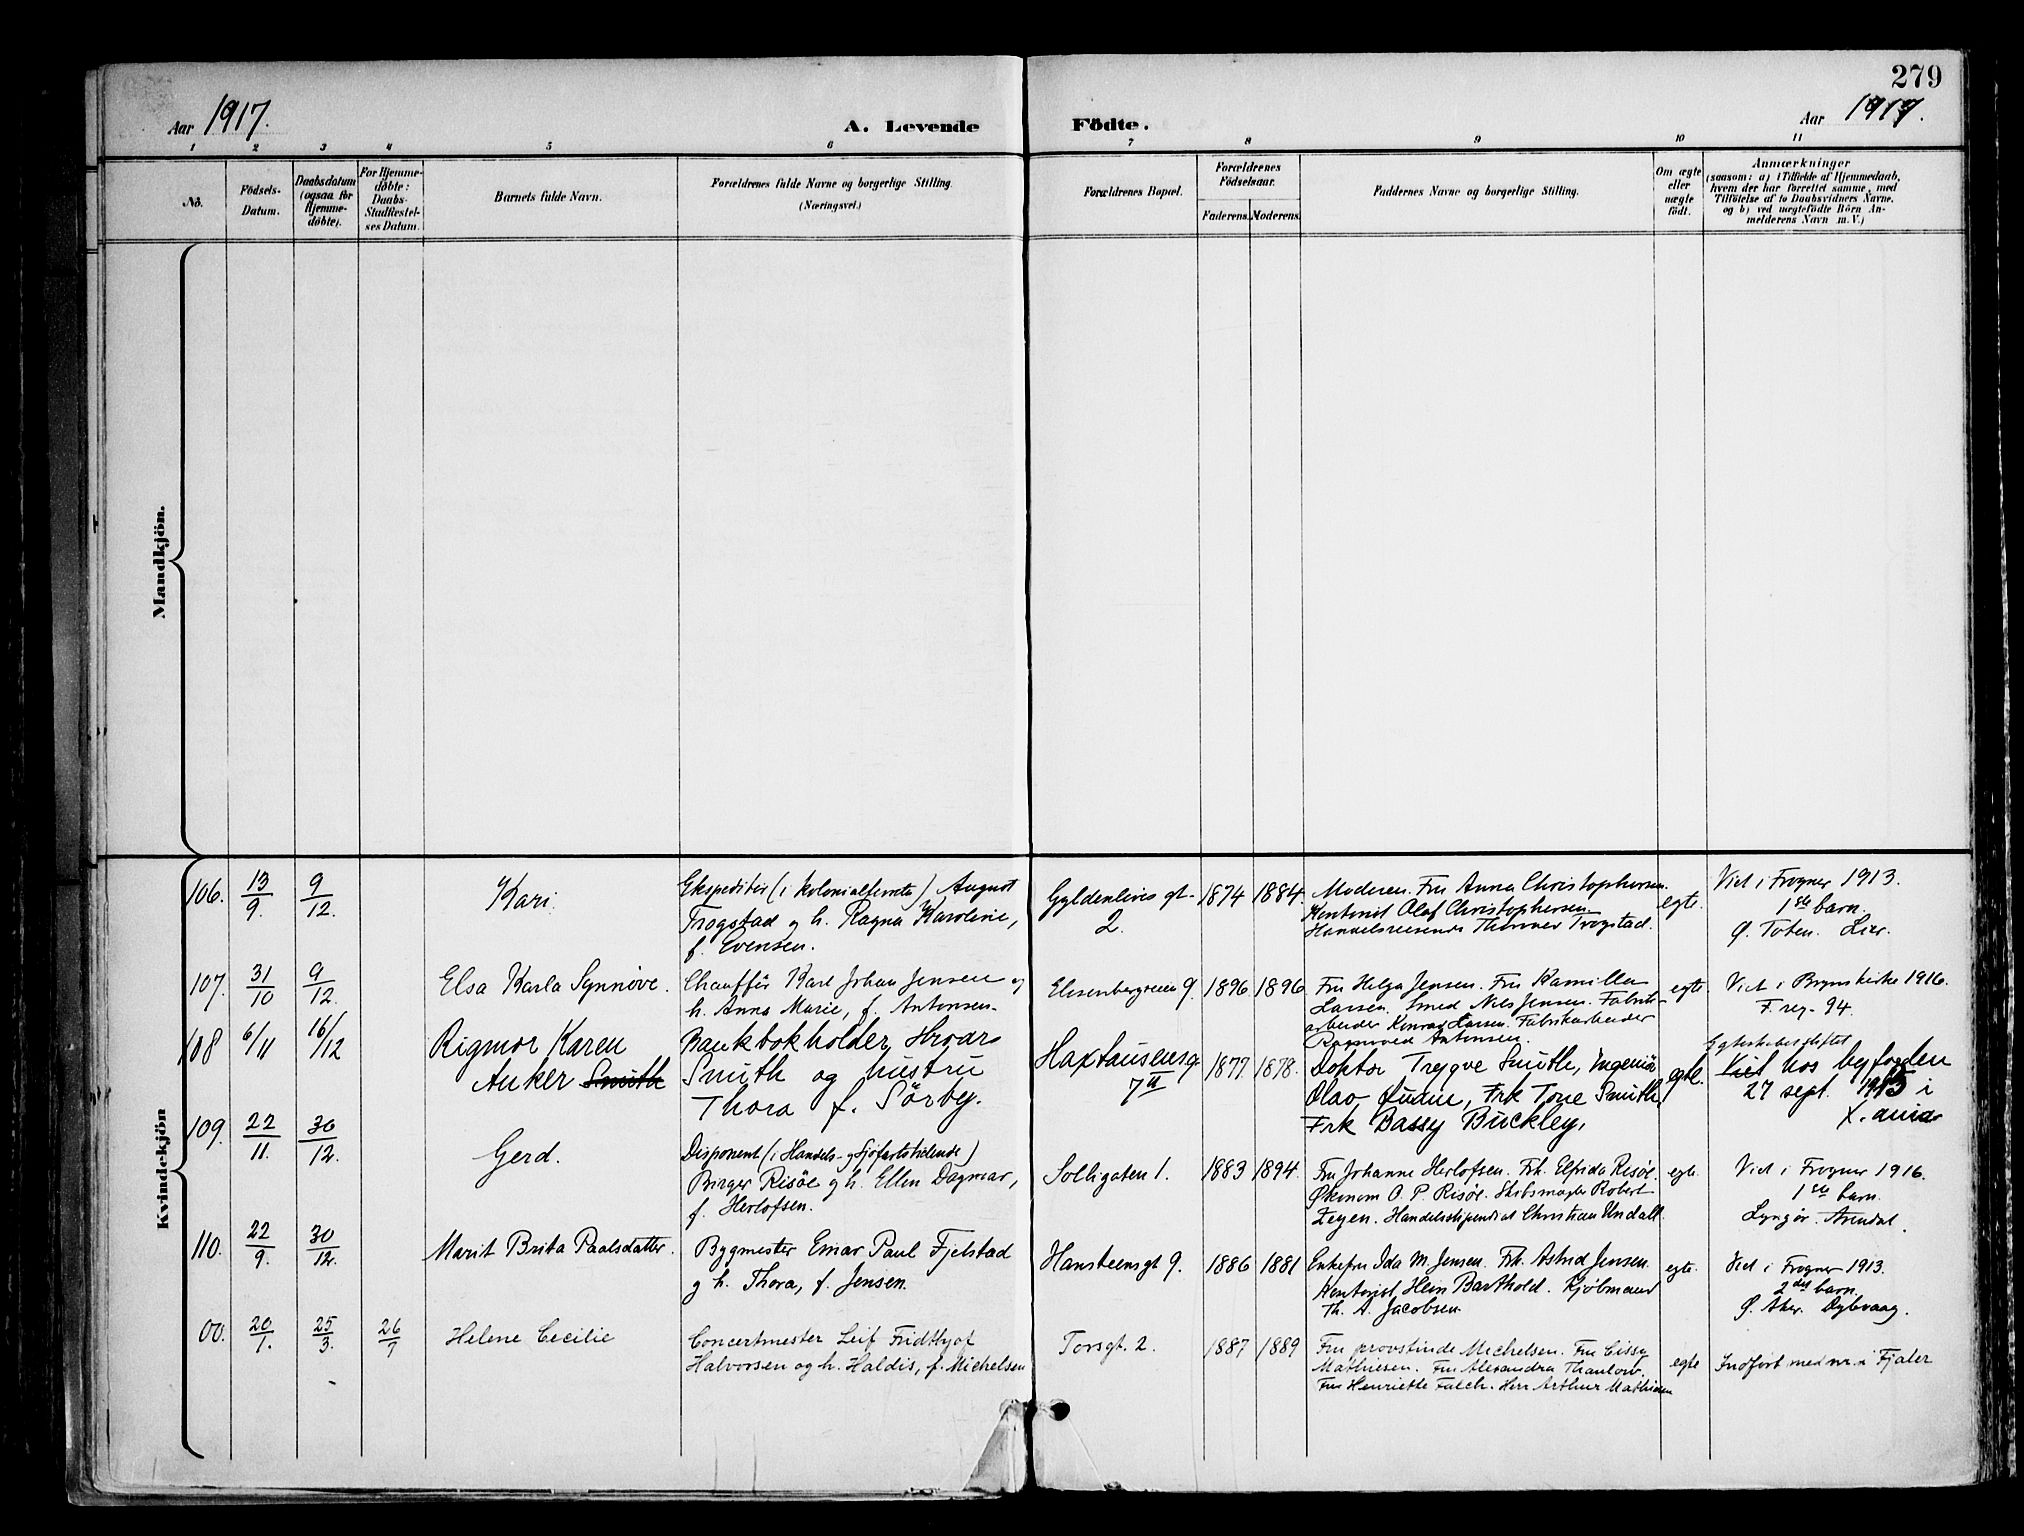 279
Aar 1917.
A. Levende Födte.
Aar 1917.
1 2 3 4 5 6 7 8 9 10 11
No.
Födsels-Datum.
Daabsdatum (ogsaa for Hjemme-döbte).
For Hjemme-döbte: Daabs-Stadfæstel-ses Datum.
Barnets fulde Navn.
Forældrenes fulde Navne og borgerlige Stilling.
(Næringsvei.)
Forældrenes Bopæl.
Forældrenes Födselsaar.
Faderens. Moderens.
Faddernes Navne og borgerlige Stilling.
Om ægte eller uægte födt.
Anmærkninger
(saasom: a) i Tilfælde af Hjemmedaab,
hvem der har forrettet samme, med
Tilföielse af to Daabsvidners Navne,
og b) ved uægtefödte Börn An-
melderens Navn m. V.)
Mandkjön.
Kvindekjön
106. 13/9. 9/12. Kari.
Ekspeditör (i kolonialforretn) August
Trogstad og h. Ragna Karoline,
f. Evensen.
Gyldenløves gt.
2.
1874 1884.
Moderen. Fru Anna Christophersen.
Kontorist Olaf Christophersen
Handelsreisende Thorvald Trogstad.
egte.
Viet i Frogner 1913.
1ste barn.
Ø. Toten. Lier.
107. 31/10 9/12. Elsa Karla Synnøve.
Chauffør Karl Johan Jensen og
h. Anna Marie, f. Antonsen.
Elisenbergveien 9.
1896 1896
Fru Helga Jensen. Fru Kamilla
Larsen. Smed Nils Jensen. Fabrik-
arbeider Konrad Larsen. Fabrikarbeider
Ragnvald Antonsen.
egte
Viet i Bryns kirke 1916.
F. reg. 94.
108 6/11 16/12 Rigmor Karen
Anker Smith
Bankbokholder Hroar
Smith og hustru
Thora f. Sörby.
Haxtausensg.
7II
1877. 1878.
Doktor Trygve Smith, Ingeniør
Olav Quam, Frk Tone Smith,
Frk Bassy Buckley.
egte.
Egteskabsstiftet
Viet hos byfogden
27 sept. 1913 i
X.ania
109. 22/11. 30/12. Gerd.
Disponent (i Handels- og Sjøfartstidende)
Birger Risöe og h. Ellen Dagmar,
f. Herlofsen.
Solligaten 1.
1883 1894.
Fru Johanne Herlofsen. Frk. Elfrida Risöe.
Økonom O. P. Risöe. Skibsmægler Robert
Zeyen. Handelsstipendiat Christian Undall.
egte.
Viet i Frogner 1916.
1ste barn.
Lyngör. Arendal.
110. 22/9. 30/12. Marit Brita Paalsdatter.
Bygmester Einar Paul Fjelstad
og h. Thora, f. Jensen.
Hansteensgt 9.
1886 1881
Enkefru Ida M. Jensen. Frk. Astrid Jensen.
Kontorist Hein Barthold. Kjøbmand
Th. A. Jacobsen
egte.
Viet i Frogner 1913.
2det barn.
Ø. Aker. Dybvaag.
00. 20/1. 25/3. 26/7 Helene Cecilie
Concertmester Leif Fridthjof
Halvorsen og h. Haldis, f. Michelsen
Torsgt. 2.
1887 1889
Fru provstinde Michelsen. Fru Cissy
Mathiesen. Fru Alexandra Thaulow.
Fru Henriette Falch. Herr Arthur Mathiesen
egte
Indført med nr. i Fjaler